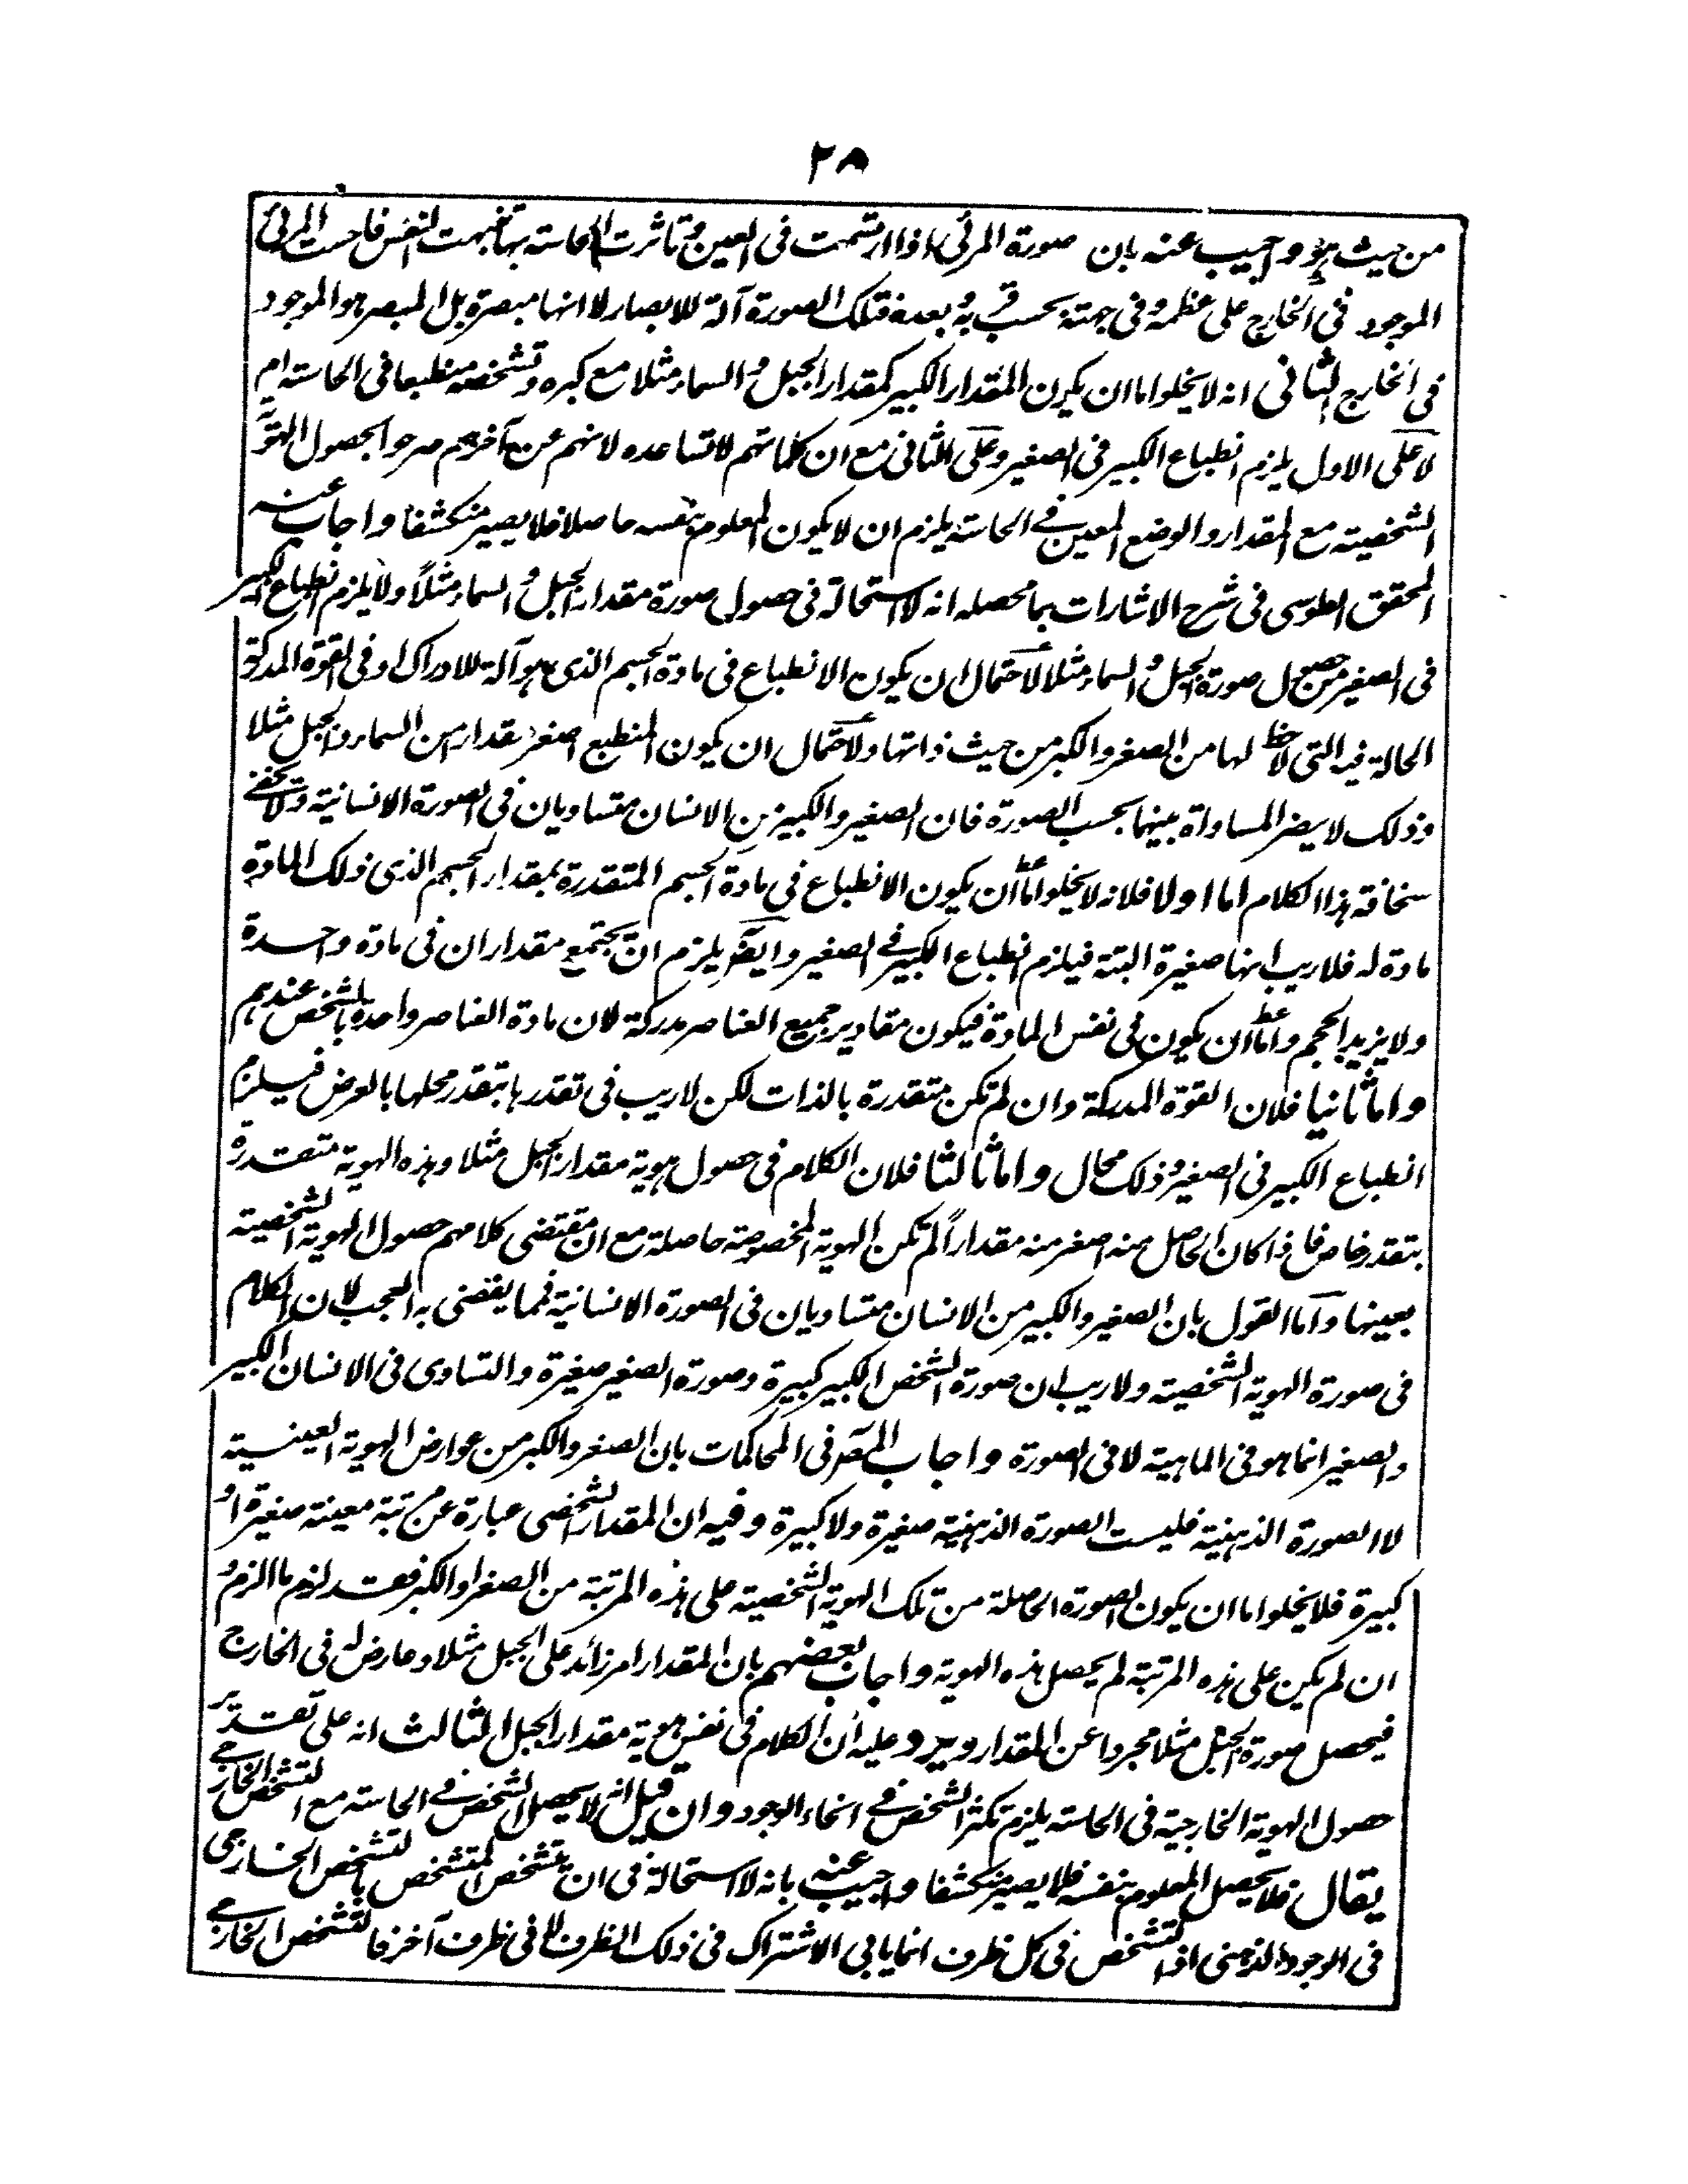 ٢٨
من حيث هو واجيب عنه بان صورة المرئي اذا ارتسمت في العين وتاثرت الحاسة بها تنبهت النفس فاحست المرئي
الموجود في الخارج على عظمه وفي جهته بحسب قربه وبعده فتلك الصورة آلة للابصار لا انها مبصرة بل المبصر هو الموجود
في الخارج الثاني انه لا يخلو اما ان يكون المقدار الكبير كمقدار الجبل والسماء مثلا مع كبره وتشخصه منطبعا في الحاسة ام
لا على الاول يلزم انطباع الكبير في الصغير وعلى الثاني مع ان كلماتهم لا تساعده لانهم عن آخرهم صرحوا بحصول الهوية
الشخصية مع المقدار والوضع المعين في الحاسة يلزم ان لا يكون المعلوم بنفسه حاصلا فلا يصير منكشفا واجاب عنه
المحقق الطوسي في شرح الاشارات بما محصله انه لا استحالة في حصول صورة مقدار الجبل والسماء مثلاً ولا يلزم انطباع الكبير
في الصغير من حصول صورة الجبل والسماء مثلا لاحتمال ان يكون الانطباع في مادة الجسم الذي هو آلة للادراك او في القوة المدركة
الحالة فيه التي لا حظ لها من الصغر والكبر من حيث ذاتها ولاحتمال ان يكون المنطبع اصغر مقدارا من السماء والجبل مثلا
وذلك لا يضر المساواة بينهما بحسب الصورة فان الصغير والكبير من الانسان متساويان في الصورة الانسانية ولا يخفى
سخافة هذا الكلام اما اولا فلانه لا يخلو اما ان يكون الانطباع في مادة الجسم المتقدرة بمقدار الجسم الذي ذلك المادة
مادة له فلا ريب انها صغيرة البتة فيلزم انطباع الكبير في الصغير وايضا يلزم ان يجتمع مقداران في مادة واحدة
ولا يزيد الحجم واما ان يكون في نفس المادة فيكون مقادير جميع العناصر مدركة لان مادة العناصر واحدة بالشخص عندهم
واما ثانيا فلان القوة المدركة وان لم تكن متقدرة بالذات لكن لا ريب في تقدرها بتقدر محلها بالعرض فيلزم
انطباع الكبير في الصغير وذلك محال واما ثالثا فلان الكلام في حصول هوية مقدار الجبل مثلا وهذه الهوية متقدرة
بتقدر خاص فاذا كان الحاصل منه اصغر منه مقداراً لم تكن الهوية المخصوصة حاصلة مع ان مقتضى كلامهم حصول الهوية الشخصية
بعينها واما القول بان الصغير والكبير من الانسان متساويان في الصورة الانسانية فمما يقضى به العجب لان الكلام
في صورة الهوية الشخصية ولا ريب ان صورة الشخص الكبير كبيرة وصورة الصغير صغيرة والتساوي في الانسان الكبير
والصغير انما هو في الماهية لا في الصورة واجاب المصر في المحاكمات بان الصغر والكبر من عوارض الهوية العينية
لا الصورة الذهنية فليست الصورة الذهنية صغيرة ولا كبيرة وفيه ان المقدار الشخصي عبارة عن مرتبة معينة صغيرة او
كبيرة فلا يخلو اما ان يكون الصورة الحاصلة من تلك الهوية الشخصية على هذه المرتبة من الصغر او الكبر فقد لزم ما الزم و
ان لم يكن على هذه المرتبة لم يحصل هذه الهوية واجاب بعضهم بان المقدار امر زائد على الجبل مثلا وعارض له في الخارج
فيحصل صورة الجبل مثلا مجردا عن المقدار ويرد عليه ان الكلام في نفس هوية مقدار الجبل الثالث انه على تقدير
حصول الهوية الخارجية في الحاسة يلزم تكثر الشخص في انحاء الوجود وان قيل انه لا يحصل الشخص في الحاسة مع التشخص الخارجي
يقال فلا يحصل المعلوم بنفسه فلا يصير منكشفا واجيب عنه بانه لا استحالة في ان يتشخص المتشخص بالتشخص الخارجي
في الوجود الذهني اذ التشخص في كل ظرف انما يابى الاشتراك في ذلك الظرف لا في ظرف آخر فالتشخص الخارجي